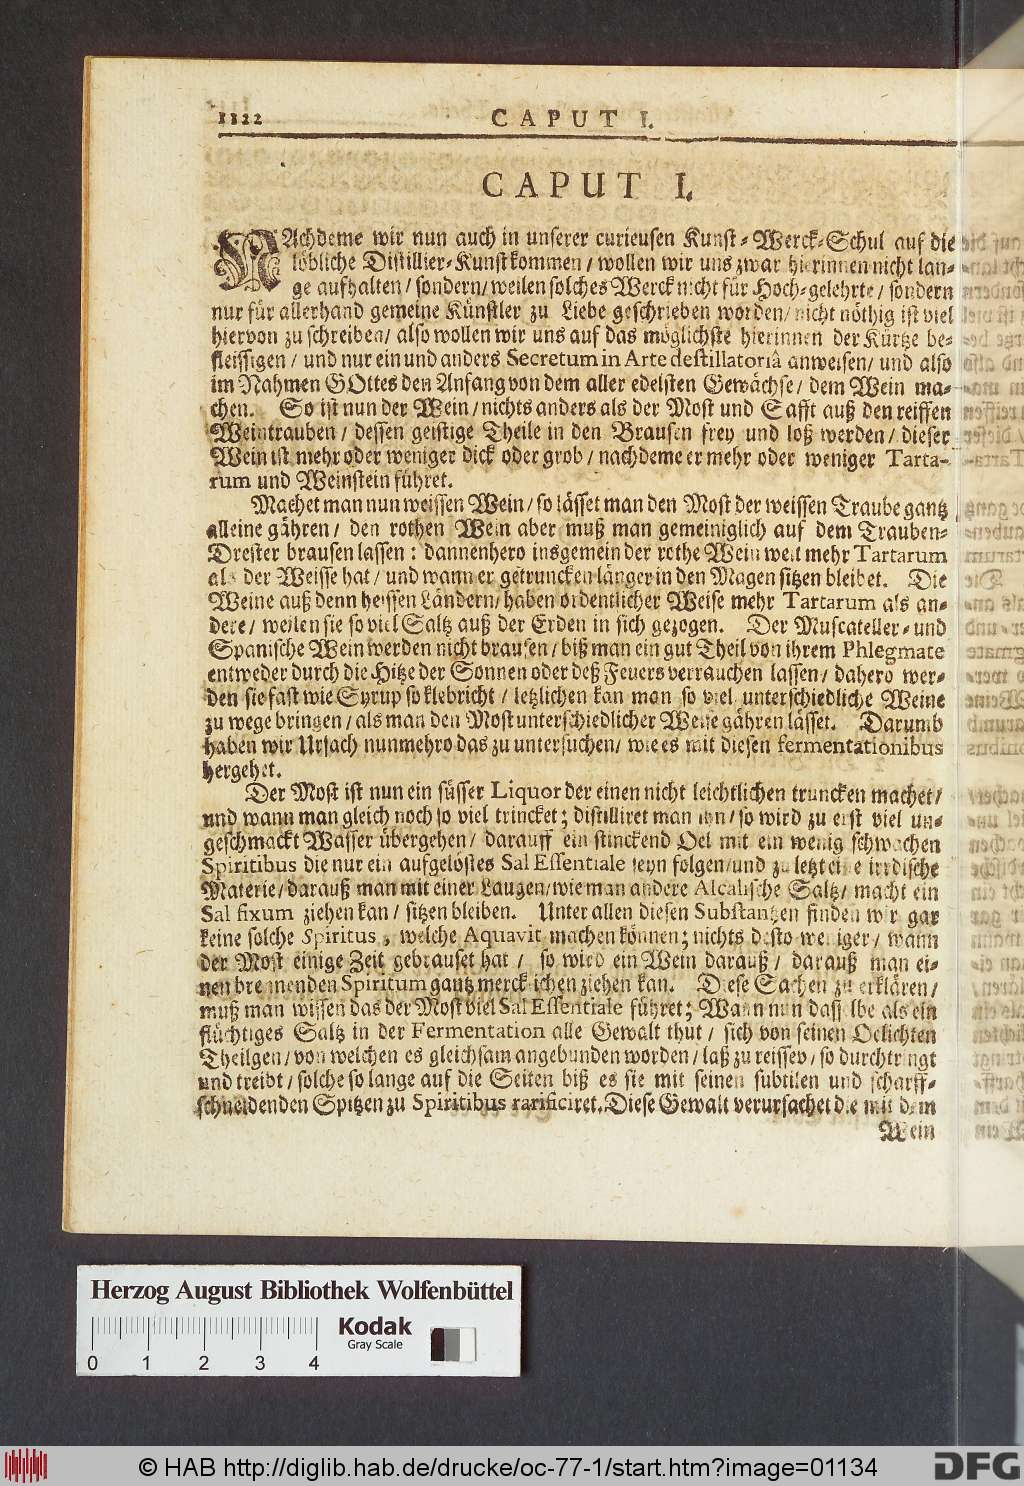 1122 CAPUT I.
CAPUT I.
NAchdeme wir nun auch in unserer curieusen Kunst-Werck-Schul auf die
löbliche Distillier-Kunst kommen / wollen wir uns zwar hierinnen nicht lan-
ge aufhalten / sondern / weilen solches Werck nicht für Hoch-gelehrte / sondern
nur für allerhand gemeine Künstler zu Liebe geschrieben worden / nicht nöthig ist viel
hiervon zu schreiben / also wollen wir uns auf das möglichste hierinnen der Kürtze be-
fleissigen / und nur ein und anders Secretum in Arte destillatoriâ anweisen / und also
im Nahmen GOttes den Anfang von dem aller edelsten Gewächse / dem Wein ma-
chen. So ist nun der Wein / nichts anders als der Most und Safft auß den reiffen
Weintrauben / dessen geistige Theile in den Brausen frey und loß werden / dieser
Wein ist mehr oder weniger dick oder grob / nachdeme er mehr oder weniger Tarta-
rum und Weinstein führet.
Machet man nun weissen Wein / so lässet man den Most der weissen Traube gantz
alleine gähren / den rothen Wein aber muß man gemeiniglich auf dem Trauben-
Drester brausen lassen : dannenhero insgemein der rothe Wein weit mehr Tartarum
als der Weisse hat / und wann er getruncken länger in den Magen sitzen bleibet. Die
Weine auß denn heissen Ländern / haben ordentlicher Weise mehr Tartarum als an-
dere / weilen sie so viel Saltz auß der Erden in sich gezogen. Der Muscateller- und
Spanische Wein werden nicht brausen / biß man ein gut Theil von ihrem Phlegmate
entweder durch die Hitze der Sonnen oder deß Feuers verrauchen lassen / dahero wer-
den sie fast wie Syrup so klebricht / letzlichen kan man so viel unterschiedliche Weine
zu wege bringen / als man den Most unterschiedlicher Weise gähren lässet. Darumb
haben wir Ursach nunmehro das zu untersuchen / wie es mit diesen fermentationibus
hergehet.
Der Most ist nun ein süsser Liquor der einen nicht leichtlichen truncken machet /
und wann man gleich noch so viel trincket ; distilliret man ihn / so wird zu erst viel un-
geschmackt Wasser übergehen / darauff ein stinckend Oel mit ein wenig schwachen
Spiritibus die nur ein aufgelöstes Sal Essentiale seyn folgen / und zu letzt eine irrdische
Materie / darauß man mit einer Laugen / wie man andere Alcalische Saltz / macht ein
Sal fixum ziehen kan / sitzen bleiben. Unter allen diesen Substantzen finden wir gar
keine solche Spiritus, welche Aquavit machen können ; nichts desto weniger / wann
der Most einige Zeit gebrauset hat / so wird ein Wein darauß / darauß man ei-
nen brennenden Spiritum gantz mercklichen ziehen kan. Diese Sachen zu erklären /
muß man wissen das der Most viel Sal Essentiale führet ; Wann nun dasselbe als ein
flüchtiges Saltz in der Fermentation alle Gewalt thut / sich von seinen Oelichten
Theilgen / von welchen es gleichsam angebunden worden / laß zu reissen / so durchtringt
und treibt / solche so lange auf die Seiten biß es sie mit seinen subtilen und scharff-
schneidenden Spitzen zu Spiritibus rarificiret. Diese Gewalt verursachet die mit dem
Wein
Herzog August Bibliothek Wolfenbüttel
Kodak
Gray Scale
0 1 2 3 4
© HAB http://diglib.hab.de/drucke/oc-77-1/start.htm?image=01134
DFG